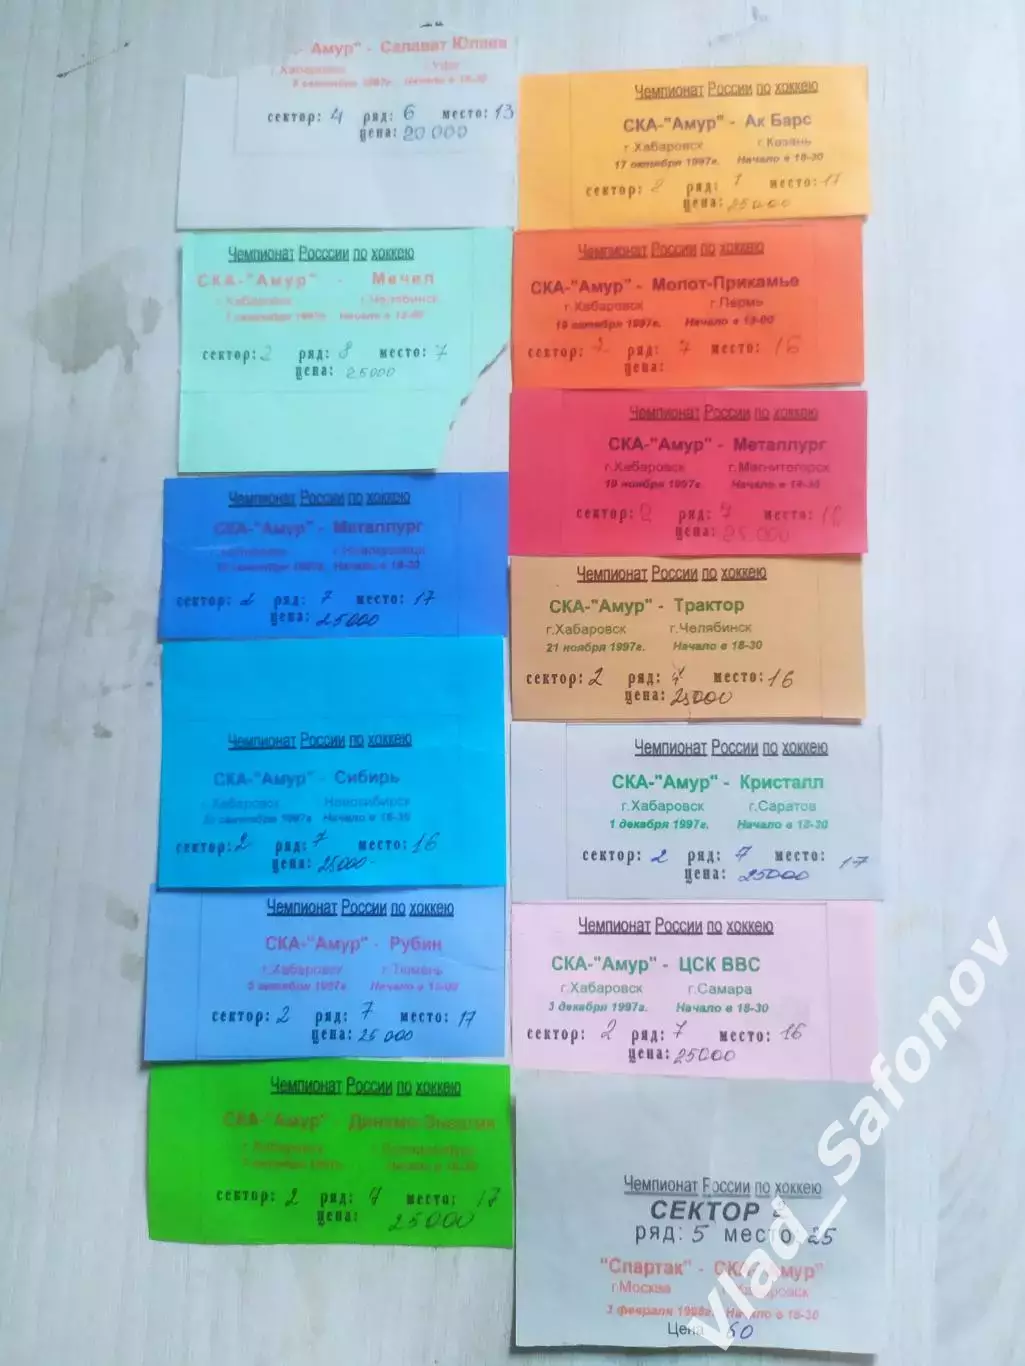 Амур" - Салават Юлаев
г.Хабаровск г.Уфа
сентября 1997г. Начало в 18-30
сектор: 4 ряд: 6 место: 13
цена: 20000
Чемпионат Росссии по хоккею
СКА-"Амур" - Мечел
г.Хабаровск г.Челябинск
сентября 1997г. Начало в 18-00
сектор: 2 ряд: 8 место: 7
цена: 25000
Чемпионат России по хоккею
СКА-"Амур" - Металлург
г.Хабаровск г.Новокузнецк
сентября 1997г. Начало в 18-30
сектор: 2 ряд: 7 место: 17
цена: 25000
Чемпионат России по хоккею
СКА-"Амур" - Сибирь
г.Хабаровск Новосибирск
сентября 1997г. Начало в 18-30
сектор: 2 ряд: 7 место: 16
цена: 25000
Чемпионат России по хоккею
СКА-"Амур" - Рубин
г.Хабаровск г.Тюмень
октября 1997г. Начало в
сектор: 2 ряд: 7 место: 17
цена: 25000
Чемпионат России по хоккею
СКА-"Амур" Динамо-Энергия
г.Хабаровск
1997г. Начало в 18-30
сектор: 2 ряд: 7 место: 17
цена: 25000
Чемпионат России по хоккею
СКА-"Амур" - Ак Барс
г.Хабаровск г.Козань
17 октября 1997г. Начало в 18-30
сектор: 2 ряд: 7 место: 17
цена: 25000
Чемпионат России по хоккею
СКА-"Амур" - Молот-Прикамье
г.Хабаровск г.Пермь
19 октября 1997г. Начало в 18-00
сектор: 2 ряд: 7 место: 16
цена:
Чемпионат России по хоккею
СКА-"Амур" - Металлург
г.Хабаровск г.Магнитогорск
19 ноября 1997г. Начало в 18-30
сектор: 2 ряд: 7 место: 16
цена: 25.000
Чемпионат России по хоккею
СКА-"Амур" - Трактор
г.Хабаровск г.Челябинск
21 ноября 1997г. Начало в 18-30
сектор: 2 ряд: 7 место: 16
цена: 25000
Чемпионат России по хоккею
СКА-"Амур" - Кристалл
г.Хабаровск г.Саратов
1 декабря 1997г. Начало в 18-30
сектор: 2 ряд: 7 место: 17
цена: 25000
Чемпионат России по хоккею
СКА-"Амур" - ЦСК ВВС
г.Хабаровск г.Самара
3 декабря 1997г. Начало в 18-30
сектор: 2 ряд: 7 место: 16
цена: 25000
Чемпионат России по хоккею
СЕКТОР
ряд: 5 место 25
"Спартак" - СКА-"Амур"
г.Москва г.Хабаровск
3 февраля 1998г. Начало в 18-30
Цена 50
Vlad_Safonov